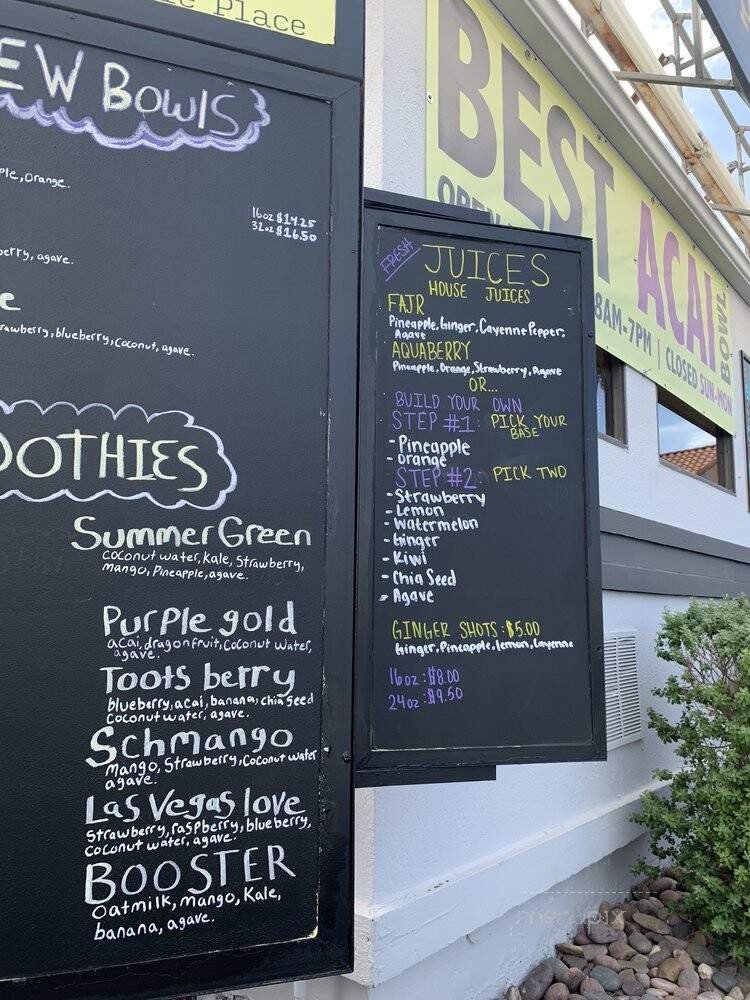 Place
EW BOWLS
ple, Orange.
16oz $14.25
32oz $16.50
berry, agave.
e
rawberry, blueberry, Coconut, agave.
OOTHIES
Summer Green
Coconut water, Kale, Strawberry,
mango, Pineapple, agave.
Purple gold
acai, dragonfruit, Coconut Water,
agave.
Toots berry
blueberry, acai, banana, chia seed
Coconut water, agave.
Schmango
Mango, Strawberry, Coconut water
agave.
Las Vegas love
Strawberry, raspberry, blueberry,
Coconut water, agave.
BOOSTER
Oatmilk, mango, Kale,
banana, agave.
FRESH
JUICES
HOUSE JUICES
FAJR
Pineapple, Ginger, Cayenne Pepper,
Agave
AQUABERRY
Pineapple, Orange, Strawberry, Agave
OR...
BUILD YOUR OWN
STEP #1: PICK YOUR
BASE
- Pineapple
- Orange
STEP #2: PICK TWO
- Strawberry
- Lemon
- Watermelon
- Ginger
- Kiwi
- Chia Seed
- Agave
GINGER SHOTS: $5.00
Ginger, Pineapple, Lemon, Cayenne
16oz: $8.00
24oz: $9.50
BEST ACAI
BOWL
OPEN
8AM-7PM | CLOSED SUN-MON
menupix